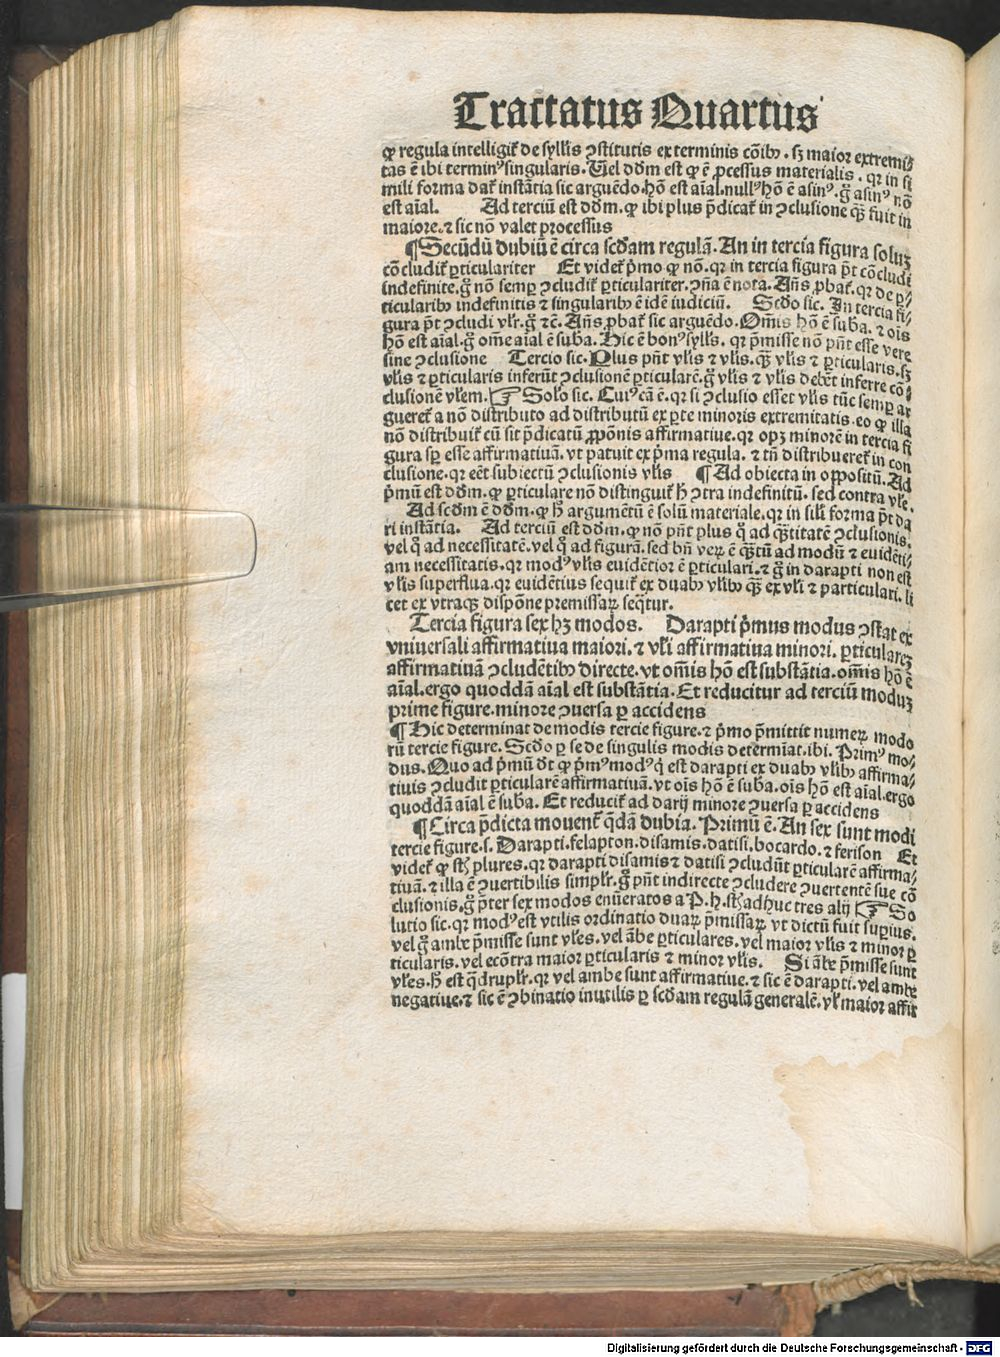 Tractatus Quartus
ꝙ regula intelligit̃ de syllĩs ꝯstitutis ex terminis cõibꝰ. sꝫ maior extremi
tas ẽ ibi terminꝰ singularis. Uel dõm est ꝙ ẽ ꝓcessus materialis. qꝛ in si
mili forma dat̃ instãtia sic arguẽdo. hõ est aĩal. nullꝰ hõ ẽ asinꝰ. g̊ asinꝰ nõ
est aĩal. Ad terciũ est dõm. ꝙ ibi plus p̃dicat̃ in ꝯclusione q̃ꝫ fuit in
maiore. ⁊ sic nõ valet processus
¶ Secũdũ dubiũ ẽ circa scđam regulã. An in tercia figura soluꝫ
cõcludit̃ ꝑticulariter Et videt̃ p̃mo ꝙ nõ. qꝛ in tercia figura p̃t cõcludi
indefinite. g̊ nõ semꝑ ꝯcludit̃ ꝑticulariter. ꝯña ẽ nota. Añs ꝓbat̃. qꝛ de ꝑ⸗
ticularibꝰ indefinitis ⁊ singularibꝰ ẽ idẽ iudiciũ. Scđo sic. In tercia fi⸗
gura p̃t ꝯcludi vl̃r. g̊ ⁊c̃. Añs ꝓbat̃ sic arguẽdo. Om̃is hõ ẽ suba. ⁊ oĩs
hõ est aĩal. g̊ om̃e aĩal ẽ suba. Hic ẽ bonꝰ syll̃s. qꝛ p̃misse nõ pñt esse vere
sine ꝯclusione Tercio sic. Plus pñt vl̃is ⁊ vl̃is. q̃ꝫ vl̃is ⁊ ꝑticularis. sꝫ
vl̃is ⁊ ꝑticularis inferũt ꝯclusionẽ ꝑticularẽ. g̊ vl̃is ⁊ vl̃is debẽt inferre cõ⸗
clusionẽ vl̃em. ☞ Solõ sic. Cuiꝰ cã ẽ. qꝛ si ꝯclusio esset vl̃is tũc semꝑ ar
gueret̃ a nõ distributo ad distributũ ex ꝑte minoris extremitatis. eo ꝙ illa
nõ distribuit̃ cũ sit p̃dicatũ ꝓpõnis affirmatiue. qꝛ opꝫ minorẽ in tercia fi
gura sꝑ esse affirmatiuã. vt patuit ex p̃ma regula. ⁊ tñ distribueret̃ in con
clusione. qꝛ eẽt subiectũ ꝯclusionis vl̃is ¶ Ad obiecta in oppositũ. Ad
p̃mũ est dõm. ꝙ ꝑticulare nõ distinguit̃ h̃ ꝯtra indefinitũ. sed contra vl̃e.
Ad scđm ẽ dõm. ꝙ h̃ argumẽtũ ẽ solũ materiale. qꝛ in sil̃i forma p̃t da
ri instãtia. Ad terciũ est dõm. ꝙ nõ pñt plus q̊ ad q̃ꝫtitatẽ ꝯclusionis.
vel q̊ ad necessitatẽ. vel q̊ ad figurã. sed bñ veꝝ ẽ q̃ꝫtũ ad modũ ⁊ euidẽti⸗
am necessitatis. qꝛ modꝰ vl̃is euidẽtior ẽ ꝑticulari. ⁊ g̊ in darapti non est
vl̃is superflua. qꝛ euidẽtius sequit̃ ex duabꝰ vl̃ibꝰ q̃ꝫ ex vl̃i ⁊ particulari. li
cet ex vtraqꝫ dispõne premissaꝝ seq̃tur.
Tercia figura sex hꝫ modos. Darapti p̃mus modus ꝯstat ex
vniuersali affirmatiua maiori. ⁊ vl̃i affirmatiua minori. ꝑticulareꝫ
affirmatiuã ꝯcludẽtibꝰ directe. vt om̃is hõ est substãtia. om̃is hõ ẽ
aĩal. ergo quoddã aĩal est substãtia. Et reducitur ad terciũ moduꝫ
prime figure. minore ꝯuersa ꝑ accidens
¶ Hic determinat de modis tercie figure. ⁊ p̃mo p̃mittit numeꝝ modo
rũ tercie figure. Scđo ꝑ se de singulis modis determĩat. ibi. Primꝰ mo⸗
dus. Quo ad p̃mũ dt̃ ꝙ p̃mꝰ modꝰ q̇ est darapti ex duabꝰ vl̃ibꝰ affirma⸗
tiuis ꝯcludit ꝑticularẽ affirmatiuã. vt oĩs hõ ẽ suba. oĩs hõ est aĩal. ergo
quoddã aĩal ẽ suba. Et reducit̃ ad darij minore ꝯuersa ꝑ accidens
¶ Circa p̃dicta mouent̃ q̃dã dubia. Primũ ẽ. An sex sunt modi
tercie figure. s. Darapti. felapton. disamis. datisi. bocardo. ⁊ ferison Et
videt̃ ꝙ st̃ plures. qꝛ darapti disamis ⁊ datisi ꝯcludũt ꝑticularẽ affirma⸗
tiuã. ⁊ illa ẽ ꝯuertibilis simpl̃r. g̊ pñt indirecte ꝯcludere ꝯuertentẽ sue cõ
clusionis. g̊ p̃ter sex modos enũeratos a P. h. st̃ adhuc tres alij ☞ So
lutio sic. qꝛ modꝰ est vtilis ordinatio duaꝝ p̃missaꝝ vt dictũ fuit supius.
vel g̊ ambe p̃misse sunt vl̃es. vel ãbe ꝑticulares. vel maior vl̃is ⁊ minor ꝑ
ticularis. vel ecõtra maior ꝑticularis ⁊ minor vl̃is. Si ãbe p̃misse sunt
vl̃es. h̃ est q̃drupl̃r. qꝛ vel ambe sunt affirmatiue. ⁊ sic ẽ darapti. vel ambe
negatiue. ⁊ sic ẽ ꝯbinatio inutilis ꝑ scđam regulã generalẽ. vl̃ maior affir
Digitalisierung gefördert durch die Deutsche Forschungsgemeinschaft - DFG